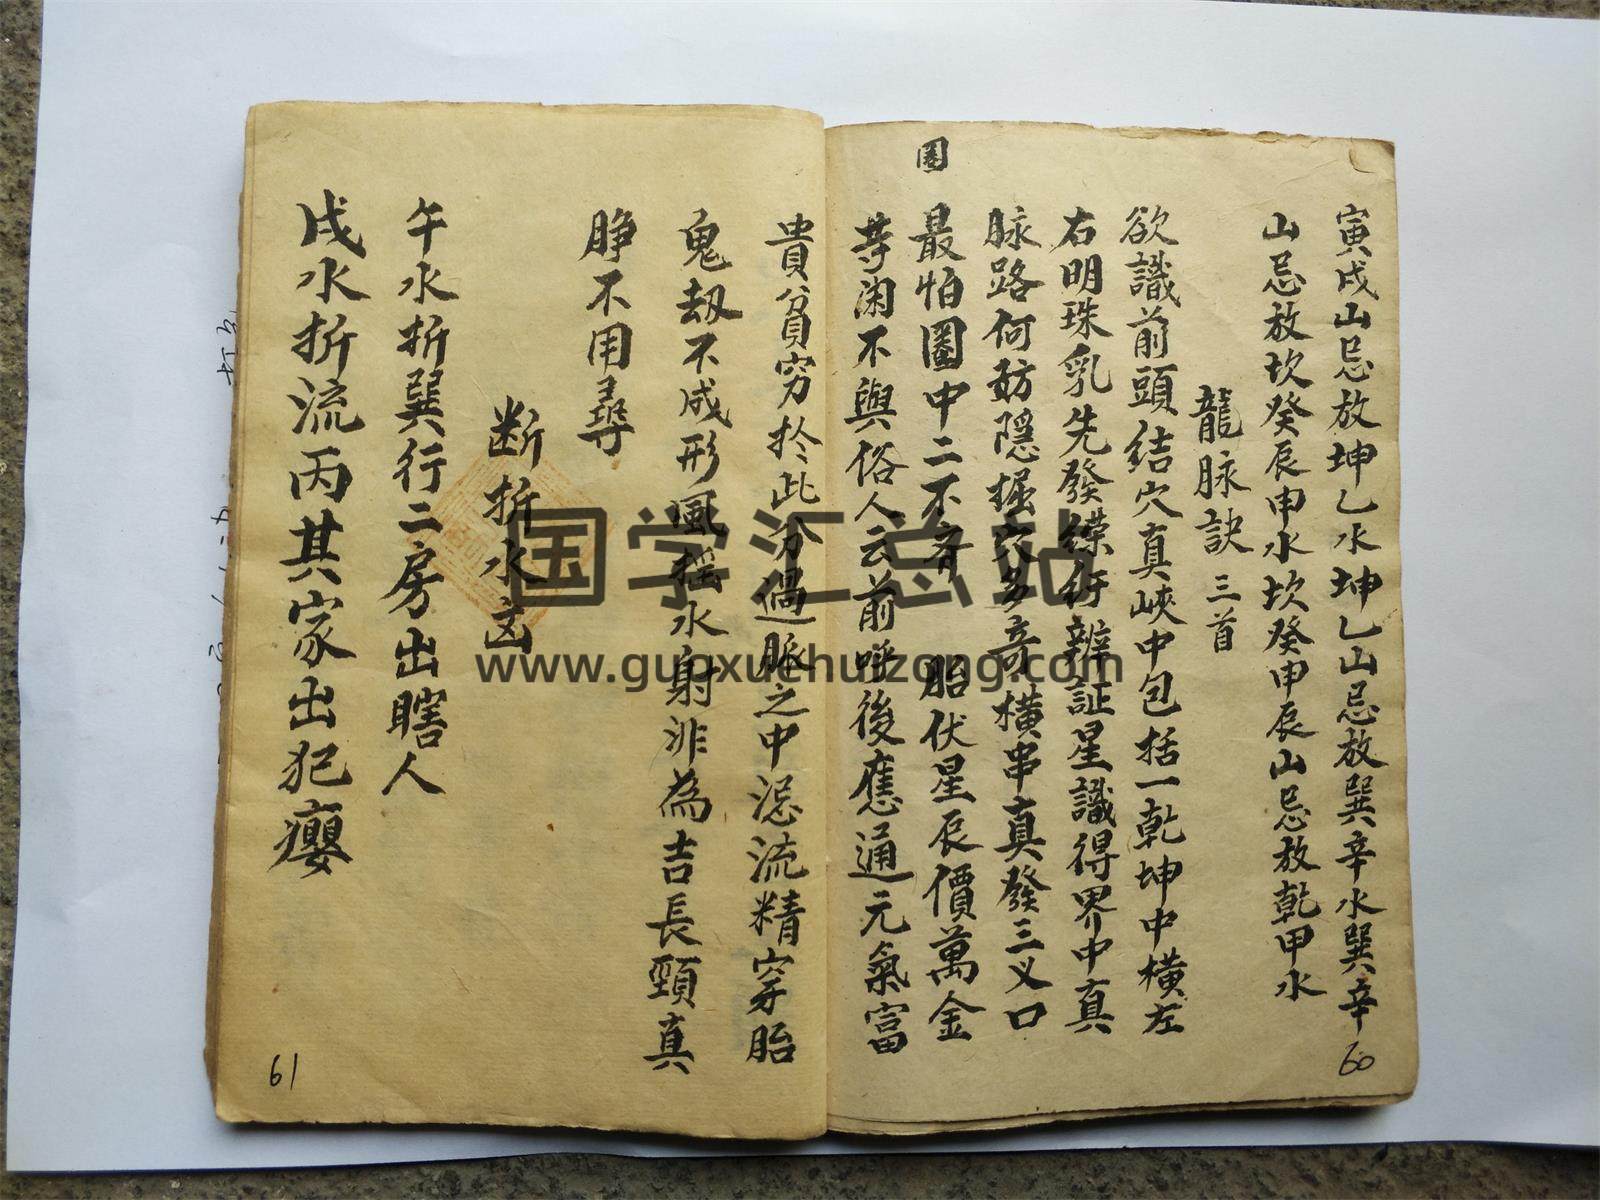 寅戌山忌放坤乙水坤乙山忌放巽辛水巽辛
山忌放坎癸辰申水坎癸申辰山忌放乾甲水
龍脉訣 三首
欲識前頭結穴真峽中包括一乾坤中橫左
右明珠乳先發纆衍辨証星識得界中真
脉路何妨隱掘穴多奇橫串真發三义口
圈
最怕圈中二不育 胎伏星辰價萬金
等闲不與俗人云前呼後應通元氣富
貴貧穷扵此分過脈之中忌流精穿胎
鬼刼不成形風搖水射非為吉長頸真
睁不用尋
断折水凶
午水折巽行二房出瞎人
戌水折流丙其家出犯癭
60
61
国学汇总站
www.guoxuehuizong.com